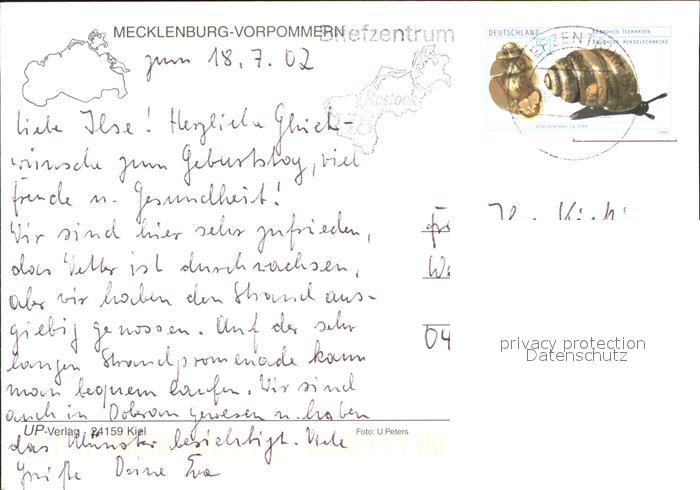 MECKLENBURG-VORPOMMERN
Briefzentrum
DEUTSCHLAND
BEDROHTE TIERARTEN
BAUCHIGE WINDELSCHNECKE
Rostock
18
zum 18.7.02
Liebe Ilse! Herzliche Glück-
wünsche zum Geburtstag, viel
Freude u. Gesundheit!
Wir sind hier sehr zufrieden,
das Wetter ist durchwachsen,
aber wir haben den Strand aus-
giebig genossen. Auf der sehr
langen Strandpromenade kann
man bequem laufen. Wir sind
auch in Doberan gewesen u. haben
das Münster besichtigt. Viele
Grüße Deine Eva
Fr
We
04
privacy protection
Datenschutz
UP-Verlag 24159 Kiel
Foto: U.Peters